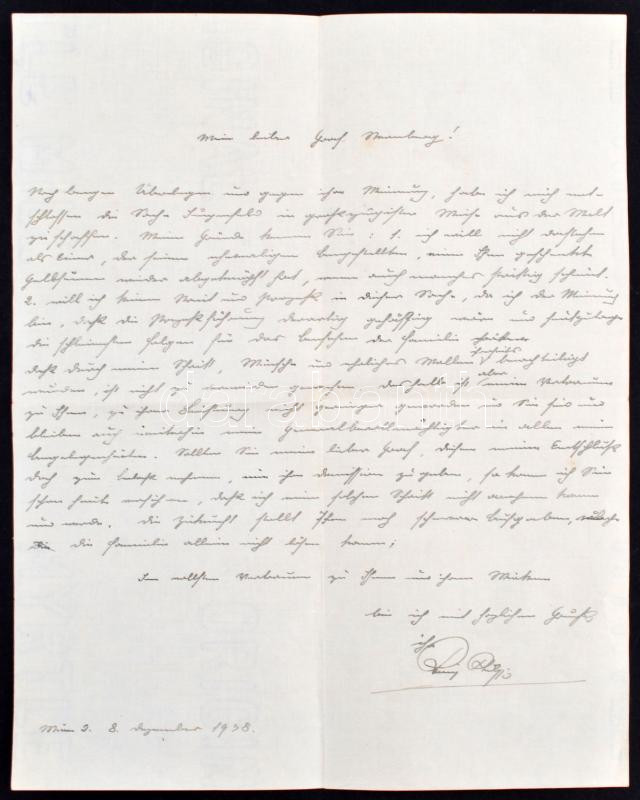 Mein lieber Graf Sternberg!
Nach langem Überlegen und gegen ihre Meinung, habe ich mich ent-
schlossen die Sache Lützenfeld in grosszügigster Weise aus der Welt
zu schaffen. Meine Gründe kennen Sie: 1. ich will nicht dastehen
als einer, der seinen ehemaligen Angestellten, einen Ihm geschenkte
Geldsumme wieder abgeknöpft hat, wenn auch manches strittig scheint.
2. will ich keinen Streit und Prozess in dieser Sache, da ich der Meinung
bin, dass die Prozessführung derartig gehässig wäre und heutzutage
die schlimmsten folgen für das Ansehen der Familie hätte
dass durch meinen Schritt, Wünsche und ehrliches Wollen benachteiligt
wurden, ist nicht zu vermeiden gewesen deshalb ist aber mein Vertrauen
zu Ihnen, zu ihrer Leistung nicht geringer geworden und Sie sind und
bleiben auch weiterhin mein Generalbevollmächtigter in allen meinen
Angelegenheiten. Sollten Sie mein lieber Graf, diesen meinen Entschluss
doch zum Anlass nehmen, mir ihre Demission zu geben, so kann ich Sie
schon heute versichern, dass ich einen solchen Schritt nicht annehmen kann
und werde. Die Zukunft stellt Ihnen noch schwerere Aufgaben, welche
die Familie allein nicht lösen kann;
Im vollsten Vertrauen zu Ihnen und ihrem Wirken
bin ich mit herzlichen Grüssen
ihr
Wien 3. 8. Dezember 1938.
darabanth